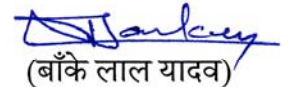 (बाँके लाल यादव)